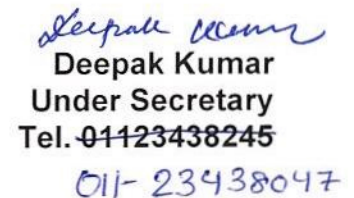 Deepak Kumar
Deepak Kumar
Under Secretary
Tel. 01123438245
011-23438047